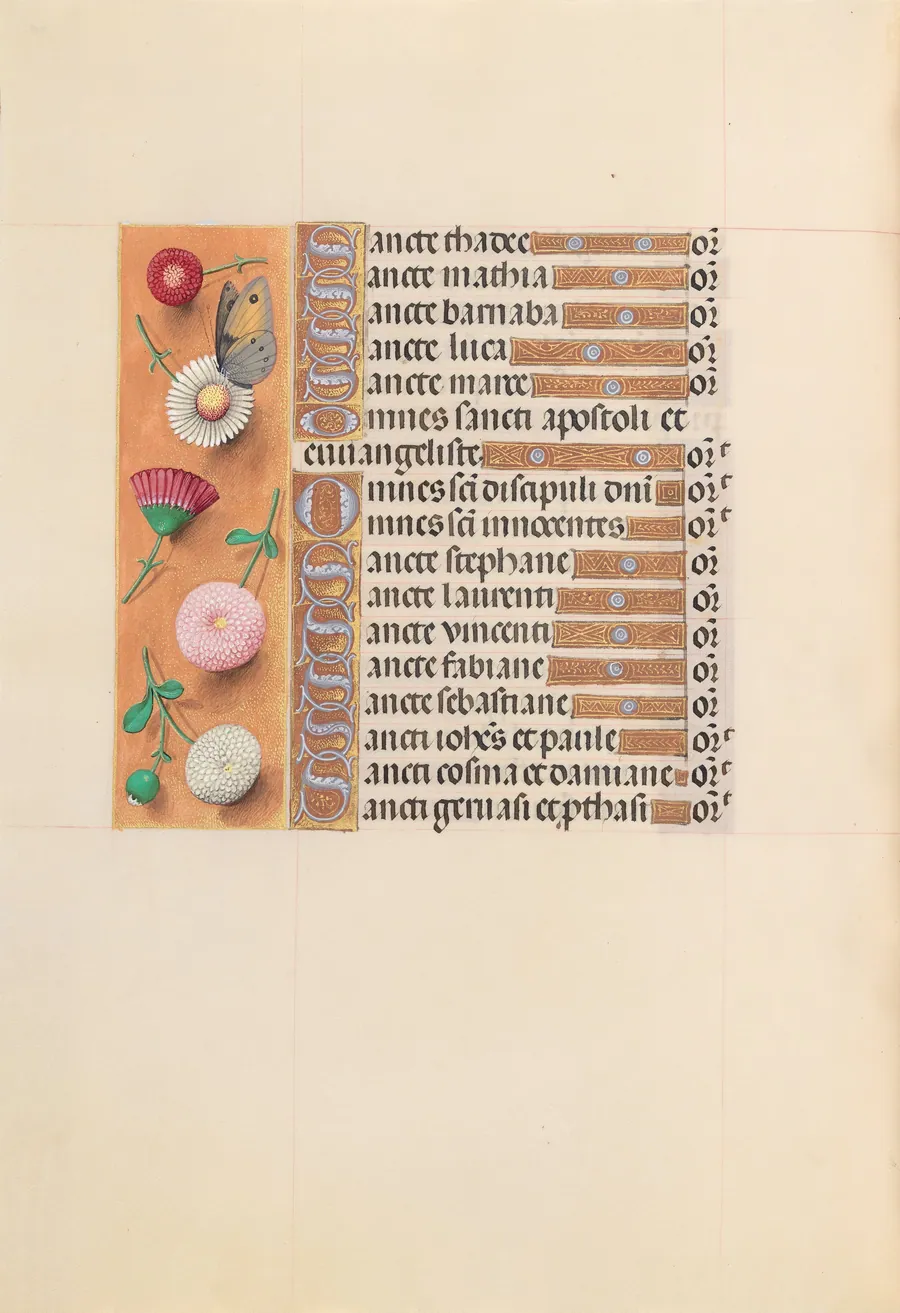 Sancte thadee or̄
Sancte mathia or̄
Sancte barnaba or̄
Sancte luca or̄
Sancte marce or̄
Omnes sancti apostoli et
euuangeliste or̄t
Omnes sc̄i discipuli dn̄i or̄t
Omnes sc̄i innocentes or̄t
Sancte stephane or̄
Sancte laurenti or̄
Sancte vincenti or̄
Sancte fabiane or̄
Sancte sebastiane or̄
Sancti ioh̄es et paule or̄t
Sancti cosma et damiane or̄t
Sancti geruasi et pthasi or̄t